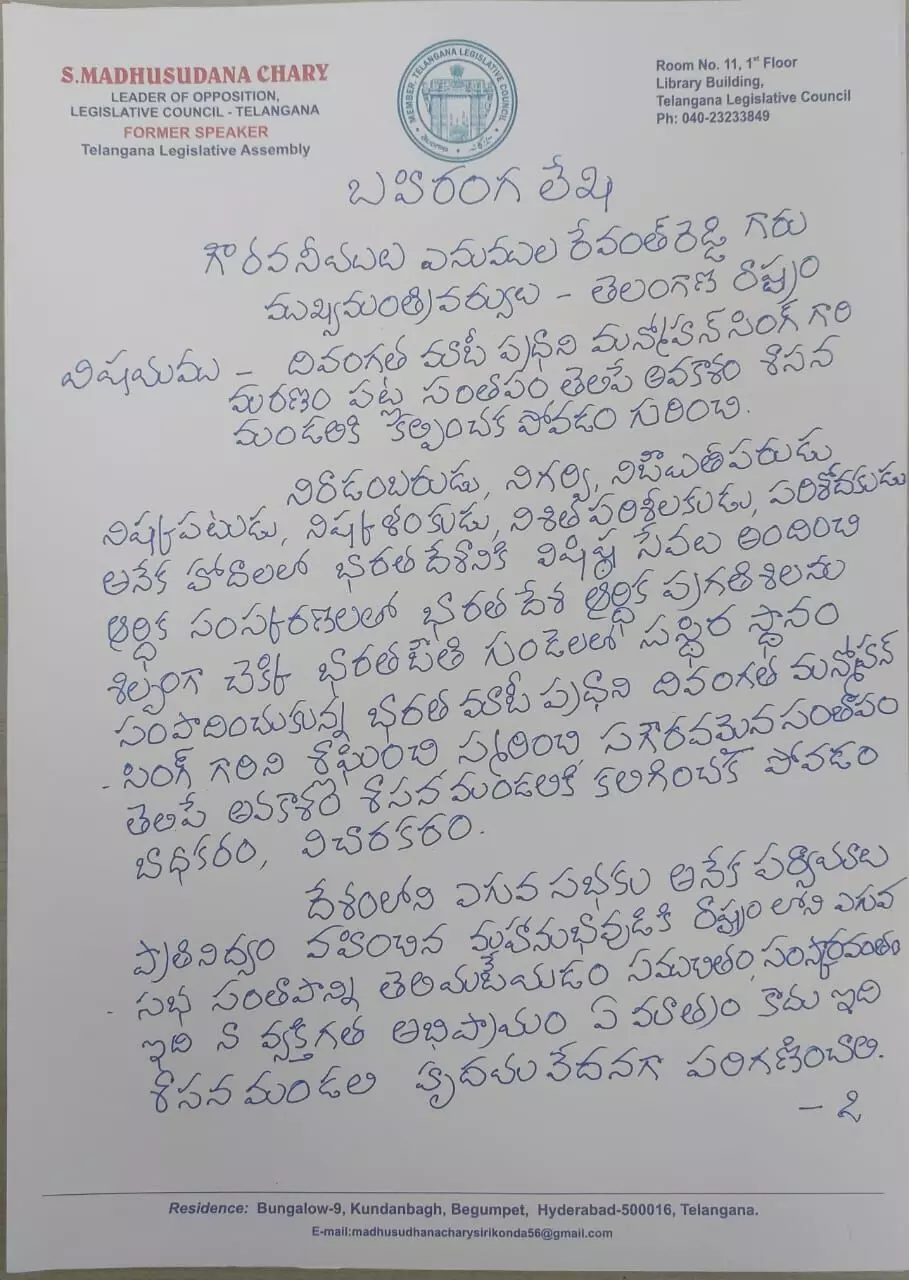 S.MADHUSUDANA CHARY
LEADER OF OPPOSITION,
LEGISLATIVE COUNCIL - TELANGANA
FORMER SPEAKER
Telangana Legislative Assembly
MEMBER, TELANGANA LEGISLATIVE COUNCIL
Room No. 11, 1st Floor
Library Building,
Telangana Legislative Council
Ph: 040-23233849
బహిరంగ లేఖ
గౌరవనీయులు ఎనుముల రేవంత్ రెడ్డి గారు
ముఖ్యమంత్రివర్యులు - తెలంగాణ రాష్ట్రం
విషయము - దివంగత మాజీ ప్రధాని మన్మోహన్ సింగ్ గారి
మరణం పట్ల సంతాపం తెలిపే అవకాశం శాసన
మండలికి కల్పించక పోవడం గురించి.
నిరాడంబరుడు, నిగర్వి, నిబద్ధతపరుడు
నిష్కపటుడు, నిష్కళంకుడు, నిశిత పరిశీలకుడు, పరిశోదకుడు
అనేక హోదాలలో భారత దేశానికి విశిష్ఠ సేవలు అందించి
ఆర్థిక సంస్కరణలతో భారత దేశ ఆర్థిక ప్రగతిశిలను
శిల్పంగా చెక్కి భారతజాతి గుండెలలో సుస్థిర స్థానం
సంపాదించుకున్న భారత మాజీ ప్రధాని దివంగత మన్మోహన్
సింగ్ గారిని శ్లాఘించి స్మరించి సగౌరవమైన సంతాపం
తెలిపే అవకాశం శాసన మండలికి కలిగించక పోవడం
బాధకరం, విచారకరం.
దేశంలోని ఎగువ సభకు అనేక పర్యాయాలు
ప్రాతినిధ్యం వహించిన మహానుభావుడికి రాష్ట్రం లోని ఎగువ
సభ సంతాపాన్ని తెలియజేయడం సముచితం, సంస్కారవంతం
ఇది నా వ్యక్తిగత అభిప్రాయం ఏ మాత్రం కాదు ఇది
శాసన మండలి హృదయ వేదనగా పరిగణించాలి.
- ౨
Residence: Bungalow-9, Kundanbagh, Begumpet, Hyderabad-500016, Telangana.
E-mail:madhusudhanacharysirikonda56@gmail.com